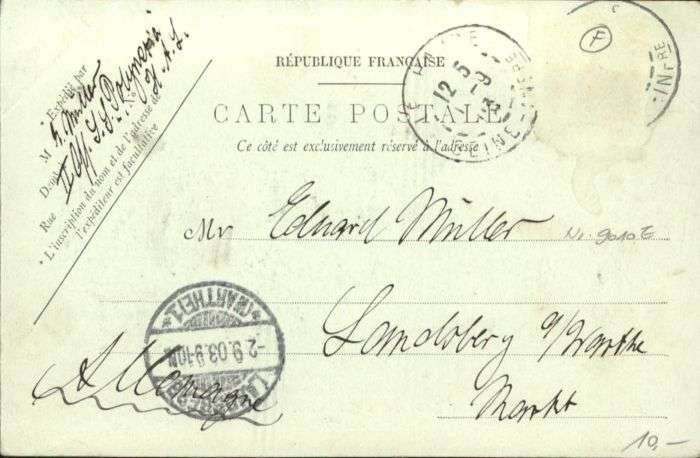 RÉPUBLIQUE FRANÇAISE
CARTE POSTALE
Ce côté est exclusivement réservé à l'adresse
Expédié par
M F. Müller
S.S. Polynesia
Rue
* L'inscription du nom et de l'adresse de
l'expéditeur est facultative
LE HAVRE
12 5
-9
SEINE-INFRE
INFRE
F
Mr Eduard Müller
No. 9010 E
Landsberg a/Warthe
Markt
Allemagne
(WARTHE)1
-2.9.03.9-10N
LANDSBERG
10,-